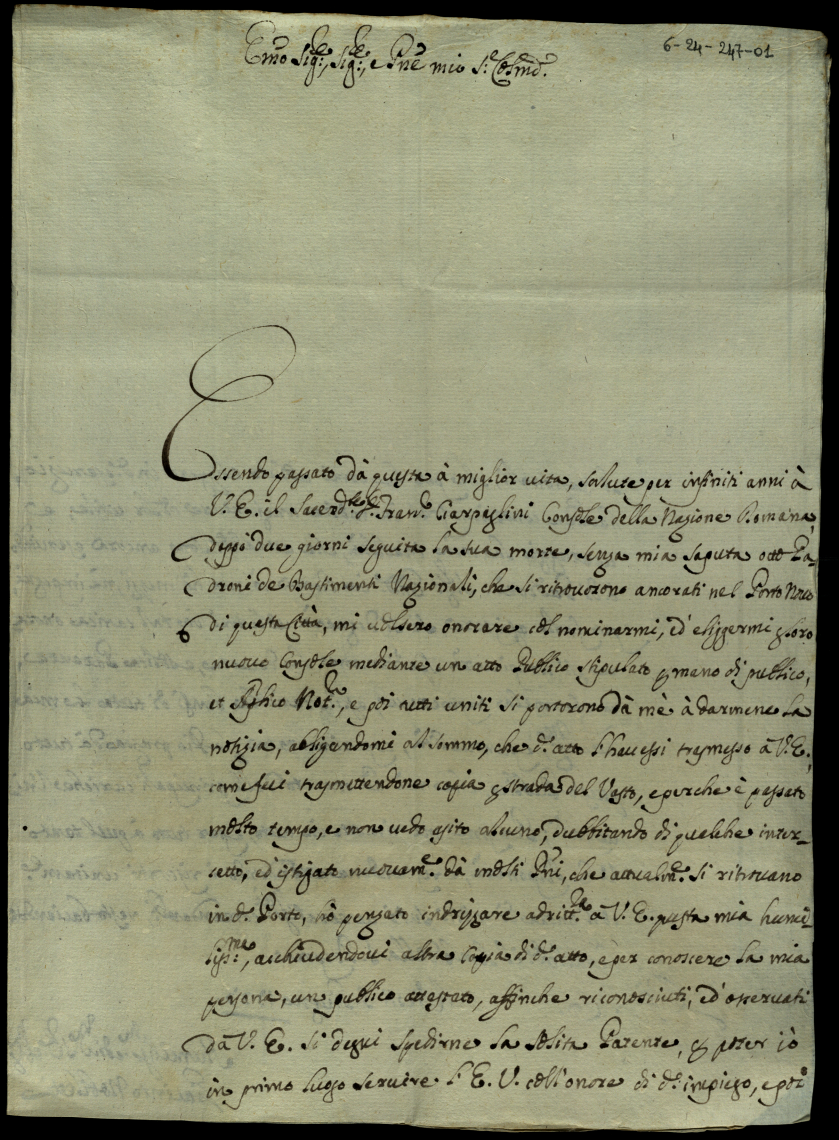 6-24-247-01
Emõ Sig:re, Sig:re, e Pñe mio S:e Colmõ:
Essendo passato dà questa à miglior vita, salute per infiniti anni à
V. E. il Sacerd:te D. Fran:co Console della Nazione Romana,
doppò due giorni seguita la sua morte, senza mia saputa otto Pa-
droni de Bastimenti Nazionali, che si ritrovorono ancorati nel Porto Novo
di questa Città, mi volsero onorare col nominarmi, ed' eliggermi p loro
nuovo Console mediante un atto Publico stipulato p mano di publico,
et Not:r, e poi tutti uniti si portorono dà mè à darmene la
notizia, obligandomi al sommo, che d:o atto l'havessi trasmesso à V. E.,
come feci trasmettendone copia p strada del Vasto, e perche è passato
molto tempo, e non vedo esito alcuno, dubbitando di qualche inter-
cetto, ed' istigato nuovam:e dà molti Pñi, che attualm:e si ritrovano
in d:o Porto, hò penzato indrizzare adritt:ra à V. E. questa mia humi-
liss:ma, acchiudendovi altra Copia di d:o atto, e per conoscere la mia
persona, un publico attestato, affinche riconosciuti, ed' osservati
dà V. E. si degni spedirne la solita Patente, p poter iò
in primo luogo servire l' E. V. coll' onore di d:o impiego, e poi